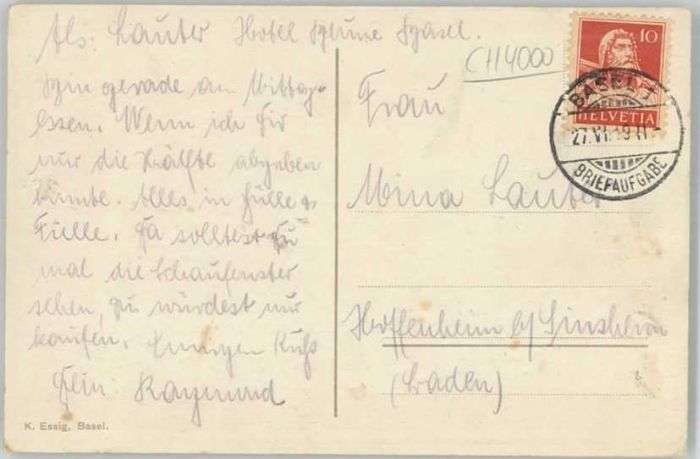 Abs: Lauter Hotel Blume Basel.
Bin gerade am Mittag-
essen. Wenn ich Dir
nur die Hälfte abgeben
könnte. Alles in Hülle &
Fülle. Da solltest Du
mal die Schaufenster
sehen, Du würdest nur
kaufen. Kuss
Dein Raymund
K. Essig, Basel.
CH4000
10
HELVETIA
BASEL 1
27.VI.19 11
BRIEFAUFGABE
Frau
Mina Lauter
Hoffenheim b/ Sinsheim
(Baden)